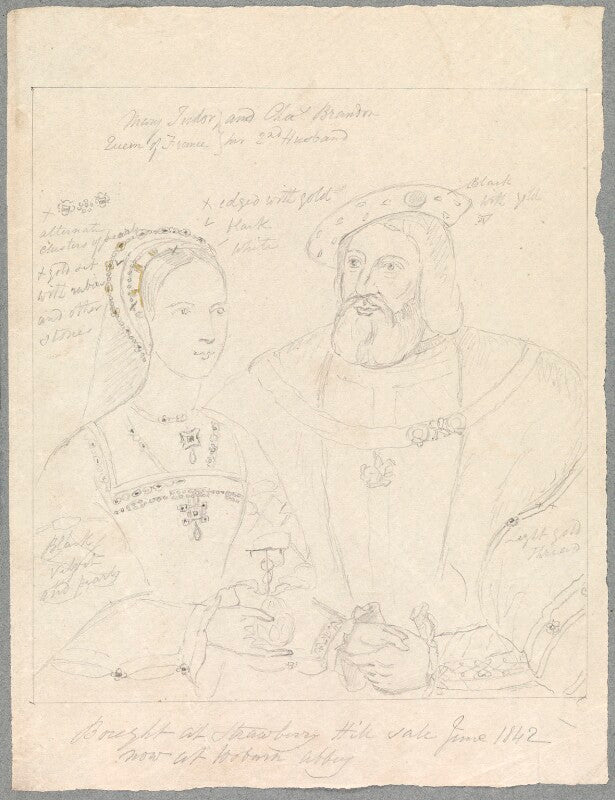 Mary Tudor } and Chas Brandon
Queen of France } her 2nd Husband
x edged with gold
L black
white
Black
with gold
x
alternate
clusters of pearls
x gold set
with rubies
and other
stones
Black
Velvet
and pearls
light gold
Thread
Bought at Strawberry Hill sale June 1842
now at Woburn abbey